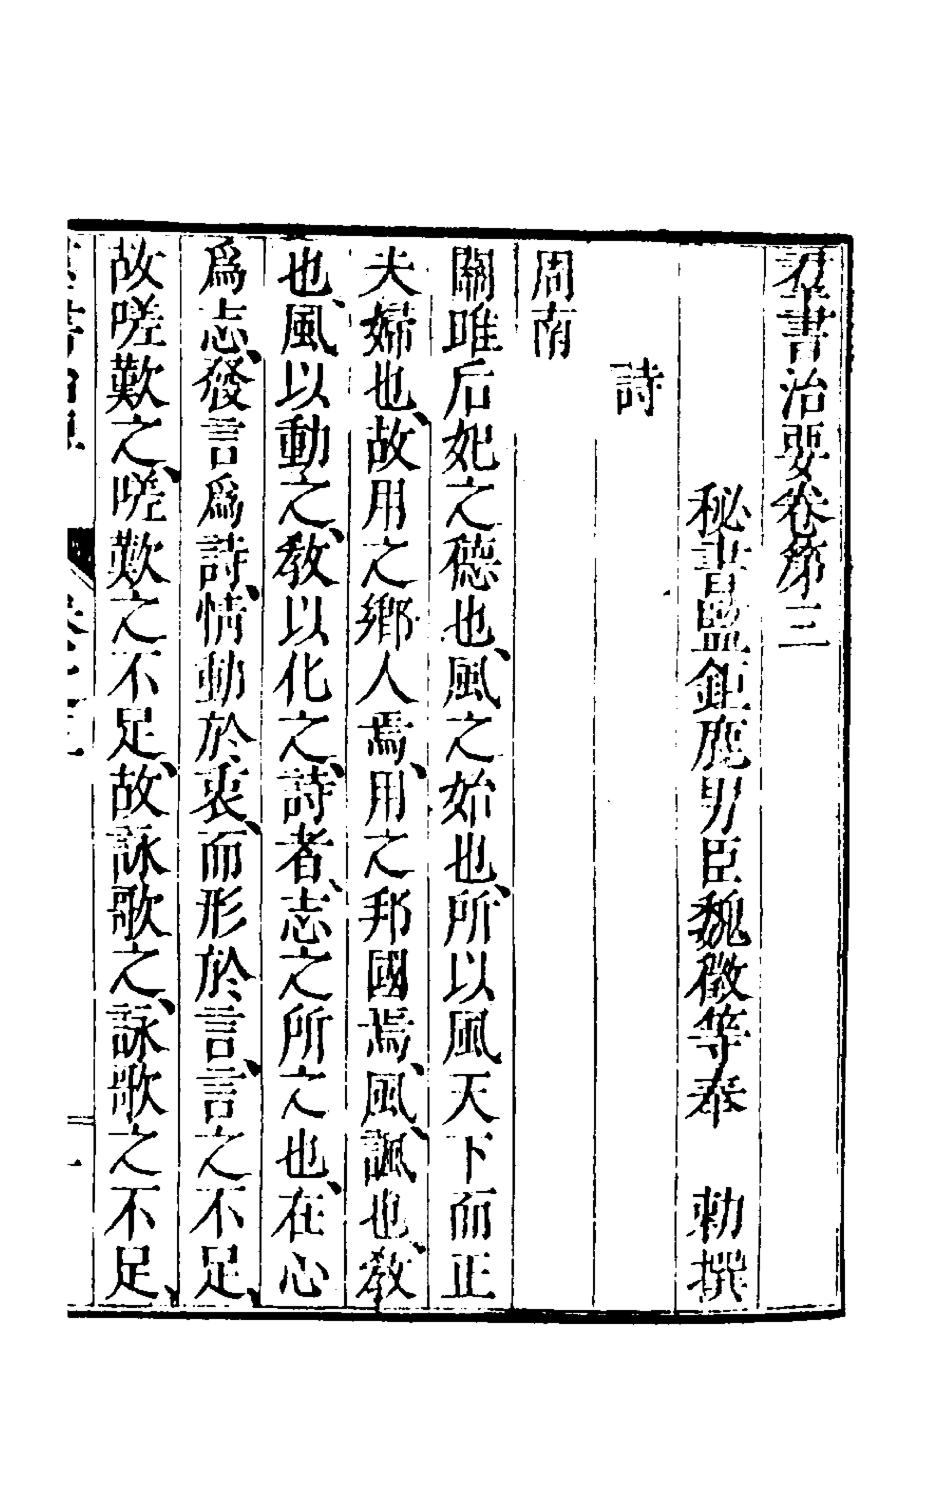 羣書治要卷第三
秘書監鉅鹿男臣魏徵等奉　勅撰
詩
周南
關雎后妃之德也、風之始也、所以風天下而正
夫婦也、故用之鄉人焉、用之邦國焉、風、諷也、教
也、風以動之、教以化之、詩者、志之所之也、在心
爲志、發言爲詩、情動於衷、而形於言、言之不足、
故嗟歎之、嗟歎之不足、故詠歌之、詠歌之不足、